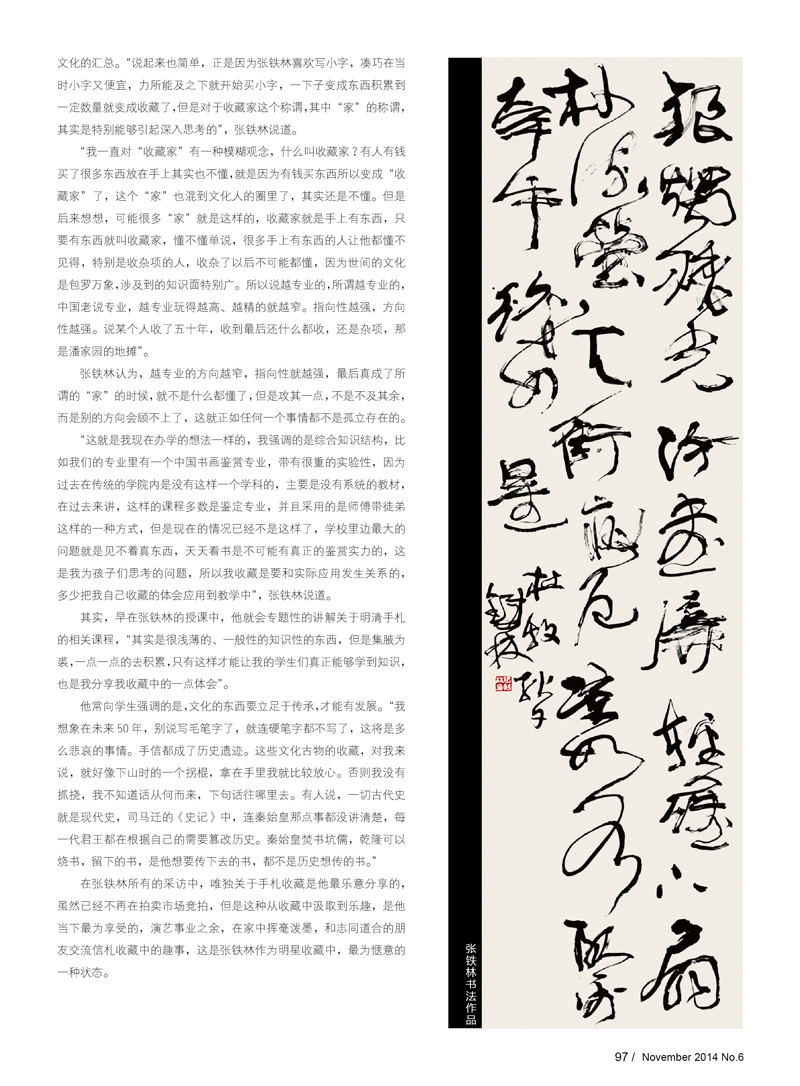 文化的汇总。“说起来也简单，正是因为张铁林喜欢写小字，凑巧在当
时小字又便宜，力所能及之下就开始买小字，一下子变成东西积累到
一定数量就变成收藏了，但是对于收藏家这个称谓，其中“家”的称谓，
其实是特别能够引起深入思考的”，张铁林说道。
“我一直对“收藏家”有一种模糊观念，什么叫收藏家？有人有钱
买了很多东西放在手上其实也不懂，就是因为有钱买东西所以变成“收
藏家”了，这个“家”也混到文化人的圈里了，其实还是不懂。但是
后来想想，可能很多“家”就是这样的，收藏家就是手上有东西，只
要有东西就叫收藏家，懂不懂单说，很多手上有东西的人让他都懂不
见得，特别是收杂项的人，收杂了以后不可能都懂，因为世间的文化
是包罗万象，涉及到的知识面特别广。所以说越专业的，所谓越专业的，
中国老说专业，越专业玩得越高、越精的就越窄。指向性越强，方向
性越强。说某个人收了五十年，收到最后还什么都收，还是杂项，那
是潘家园的地摊”。
张铁林认为，越专业的方向越窄，指向性就越强，最后真成了所
谓的“家”的时候，就不是什么都懂了，但是攻其一点，不是不及其余，
而是别的方向会顾不上了，这就正如任何一个事情都不是孤立存在的。
“这就是我现在办学的想法一样的，我强调的是综合知识结构，比
如我们的专业里有一个中国书画鉴赏专业，带有很重的实验性，因为
过去在传统的学院内是没有这样一个学科的，主要是没有系统的教材，
在过去来讲，这样的课程多数是鉴定专业，并且采用的是师傅带徒弟
这样的一种方式，但是现在的情况已经不是这样了，学校里边最大的
问题就是见不着真东西，天天看书是不可能有真正的鉴赏实力的，这
是我为孩子们思考的问题，所以我收藏是要和实际应用发生关系的，
多少把我自己收藏的体会应用到教学中”，张铁林说道。
其实，早在张铁林的授课中，他就会专题性的讲解关于明清手札
的相关课程，“其实是很浅薄的、一般性的知识性的东西，但是集腋为
裘，一点一点的去积累，只有这样才能让我的学生们真正能够学到知识，
也是我分享我收藏中的一点体会”。
他常向学生强调的是，文化的东西要立足于传承，才能有发展。“我
想象在未来 50 年，别说写毛笔字了，就连硬笔字都不写了，这将是多
么悲哀的事情。手信都成了历史遗迹。这些文化古物的收藏，对我来
说，就好像下山时的一个拐棍，拿在手里我就比较放心。否则我没有
抓挠，我不知道话从何而来，下句话往哪里去。有人说，一切古代史
就是现代史，司马迁的《史记》中，连秦始皇那点事都没讲清楚，每
一代君王都在根据自己的需要篡改历史。秦始皇焚书坑儒，乾隆可以
烧书，留下的书，是他想要传下去的书，都不是历史想传的书。”
在张铁林所有的采访中，唯独关于手札收藏是他最乐意分享的，
虽然已经不再在拍卖市场竞拍，但是这种从收藏中汲取到乐趣，是他
当下最为享受的，演艺事业之余，在家中挥毫泼墨，和志同道合的朋
友交流信札收藏中的趣事，这是张铁林作为明星收藏中，最为惬意的
一种状态。
銀燭穐光冷畫屏輕羅小扇
扑流螢天街夜色涼如水臥看
牽牛織女星
杜牧秋夕
鐵林
张铁林书法作品
97 / November 2014 No.6